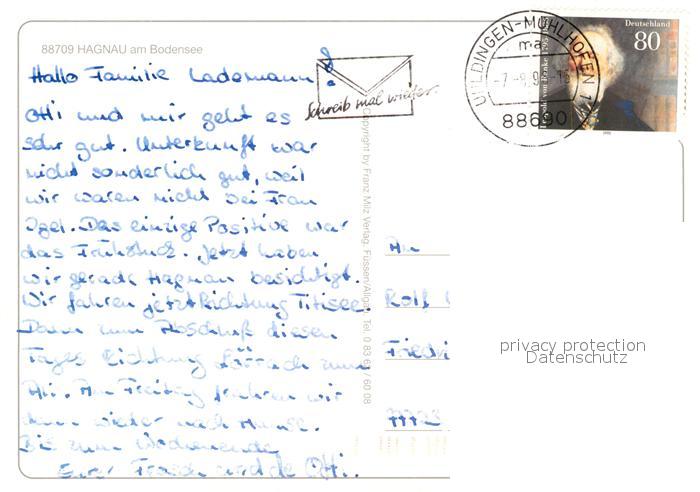 88709 HAGNAU am Bodensee
Hallo Familie Lademann!
Otti und mir geht es
sehr gut. Unterkunft war
nicht sonderlich gut, weil
wir waren nicht bei Frau
Igel. Das einzige Positive war
das Frühstück. Jetzt haben
wir gerade Hagnau besichtigt.
Wir fahren jetzt Richtung Titisee.
Dann zum Abschluß diesen
Tages Richtung Lörrach zum
Ali. Am Freitag fahren wir
dann wieder nach Hause.
Bis zum Wochenende
Euer Frasch und de Otti.
Schreib mal wieder.
Copyright by Franz Milz Verlag, Füssen/Allgäu Tel. 0 83 62 / 60 08
UHLDINGEN-MÜHLHOFEN 1
ma
88690
Deutschland
80
An
Rolf
Friedri
privacy protection
Datenschutz